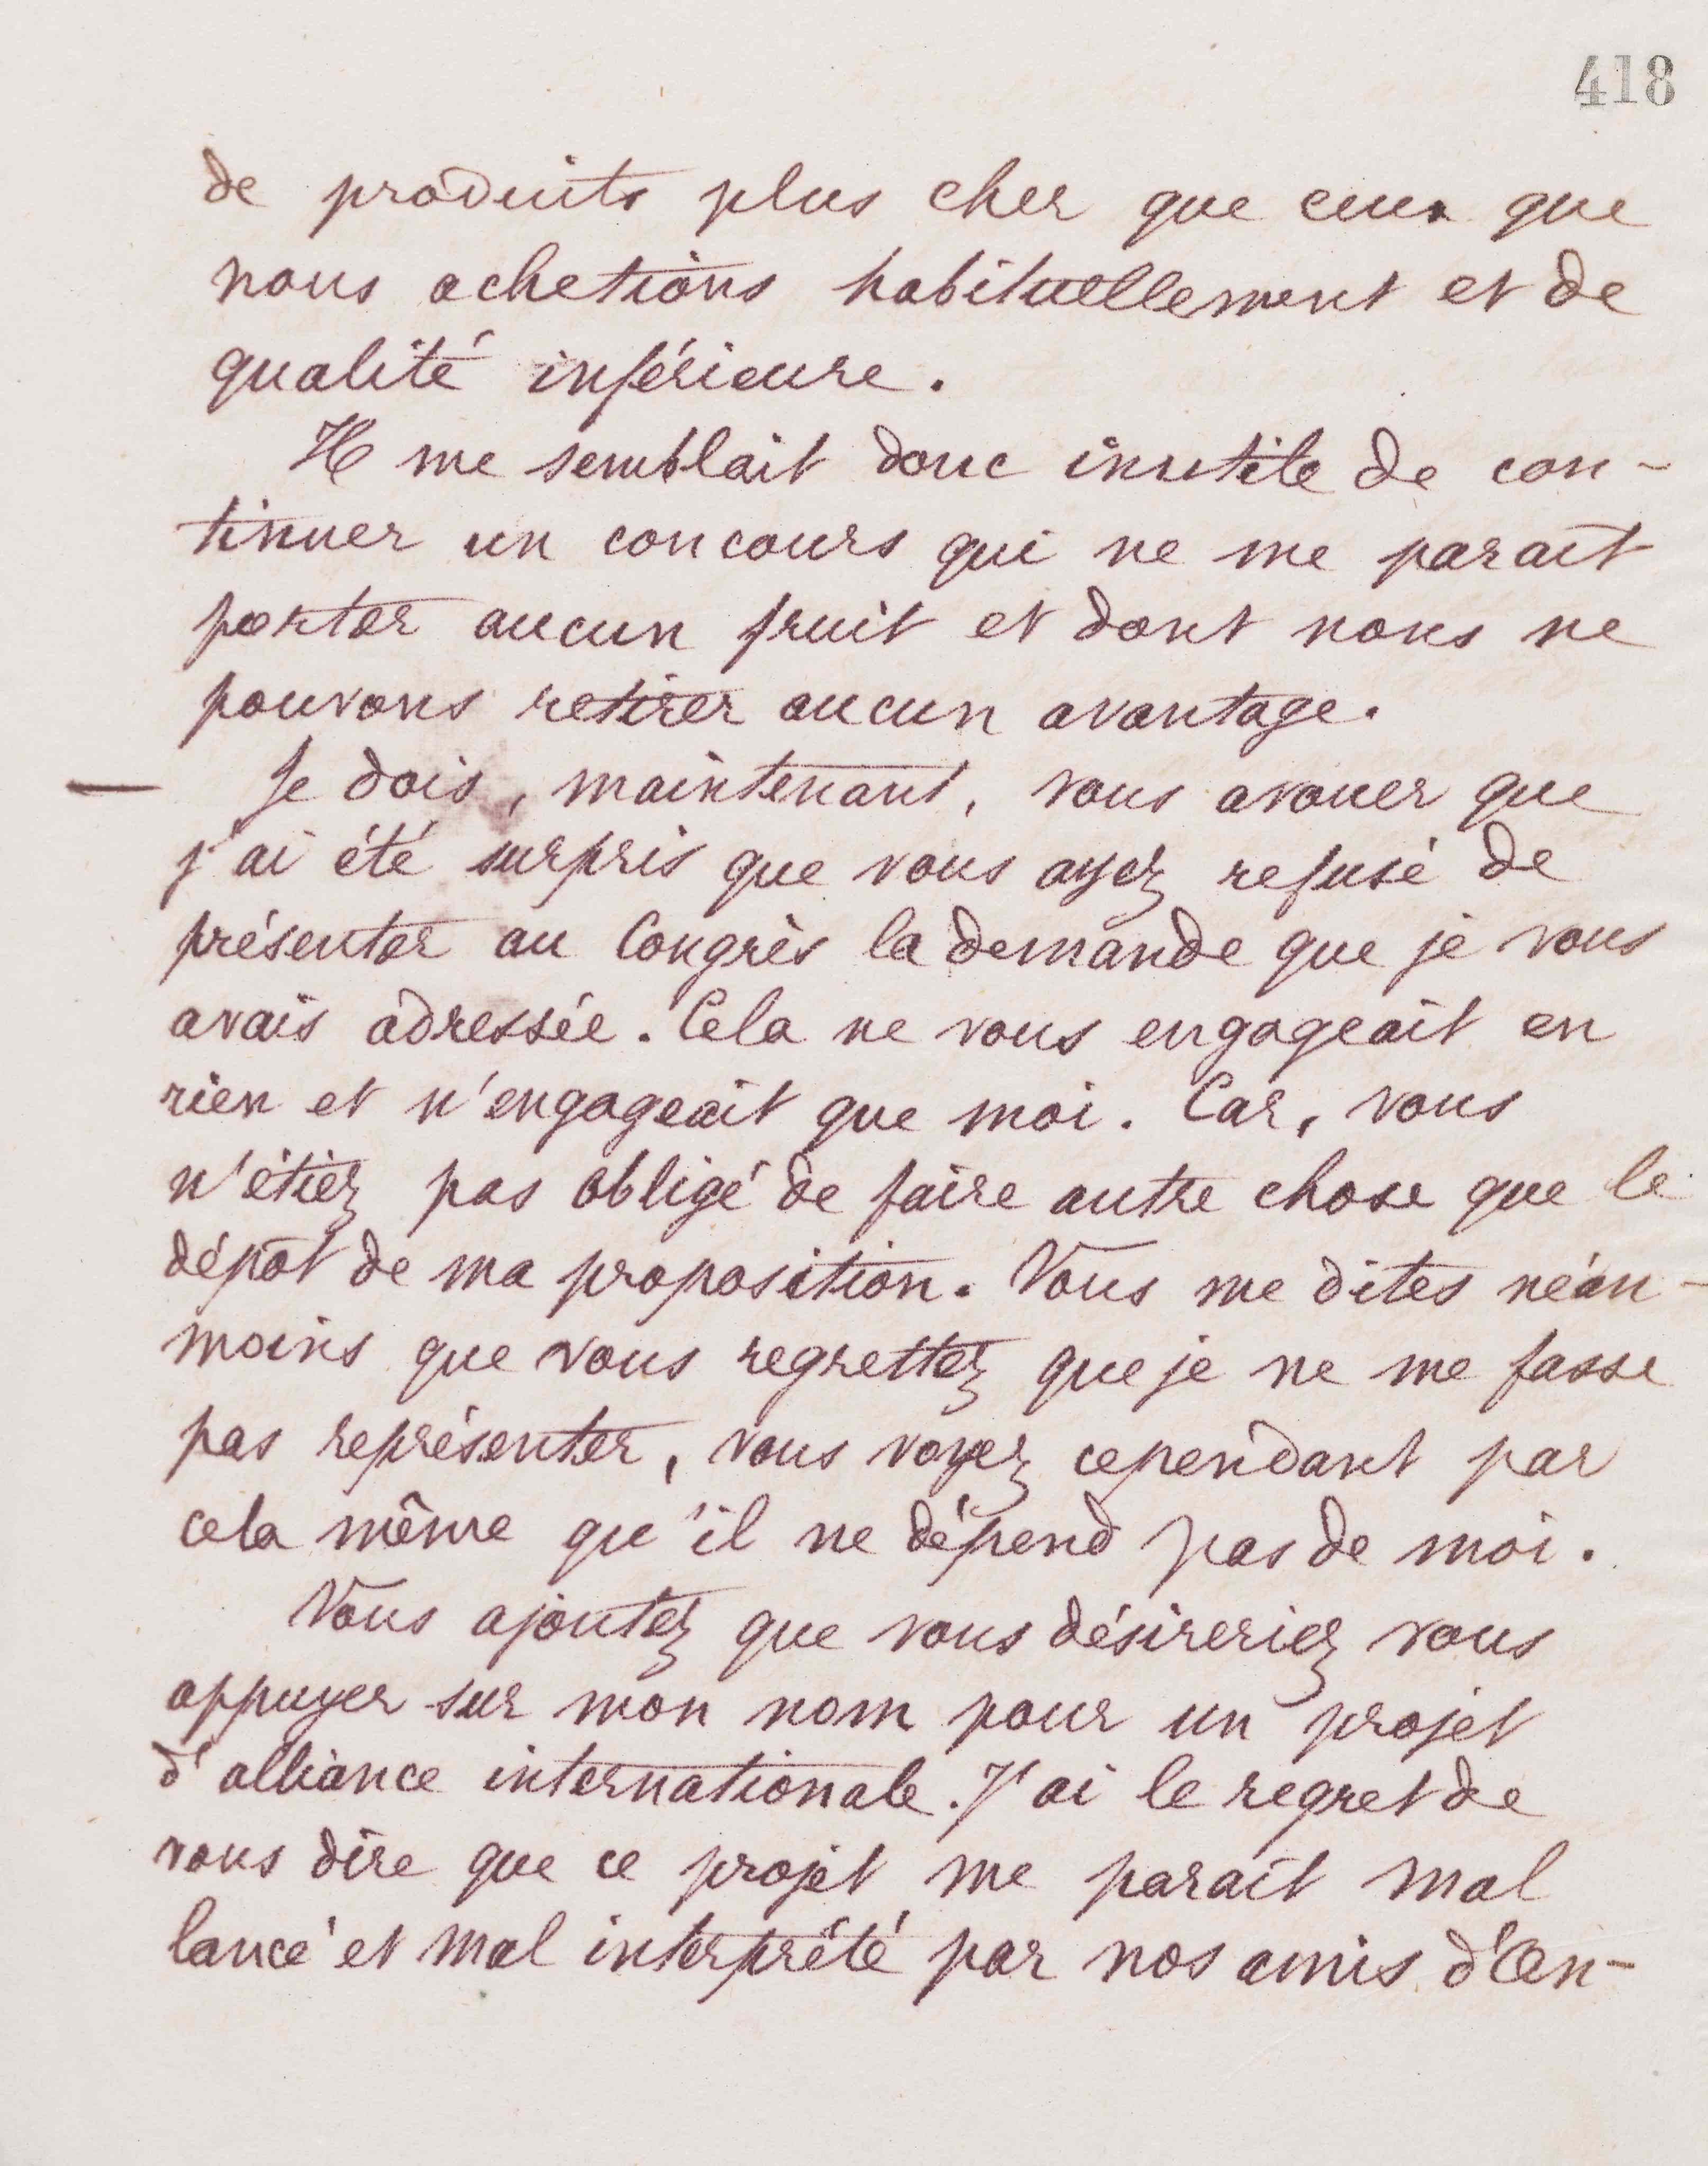 418
de produits plus cher que ceux que
nous achetions habituellement et de
qualité inférieure.
Il me semblait donc inutile de con-
tinuer un concours qui ne me parait
porter aucun fruit et dont nous ne
pouvons retirer aucun avantage.
— Je dois, maintenant, vous avouer que
j'ai été surpris que vous ayez refusé de
présenter au Congrès la demande que je vous
avais adressée. Cela ne vous engageait en
rien et n'engageait que moi. Car, vous
n'étiez pas obligé de faire autre chose que le
dépot de ma proposition. Vous me dites néan-
moins que vous regrettez que je ne me fasse
pas représenter, vous voyez cependant par
cela même qu'il ne dépend pas de moi.
Vous ajoutez que vous désireriez vous
appuyer sur mon nom pour un projet
d'alliance internationale. J'ai le regret de
vous dire que ce projet me parait mal
lancé et mal interprêté par nos amis d'An-